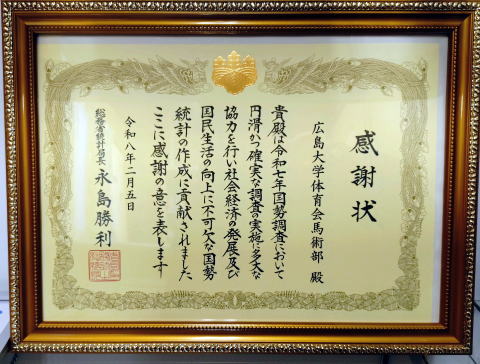 感謝状
広島大学体育会馬術部 殿
貴殿は令和七年国勢調査において
円滑かつ確実な調査の実施に多大な
協力を行い社会経済の発展及び
国民生活の向上に不可欠な国勢
統計の作成に貢献されました
ここに感謝の意を表します
令和八年二月五日
総務省統計局長 永島勝利